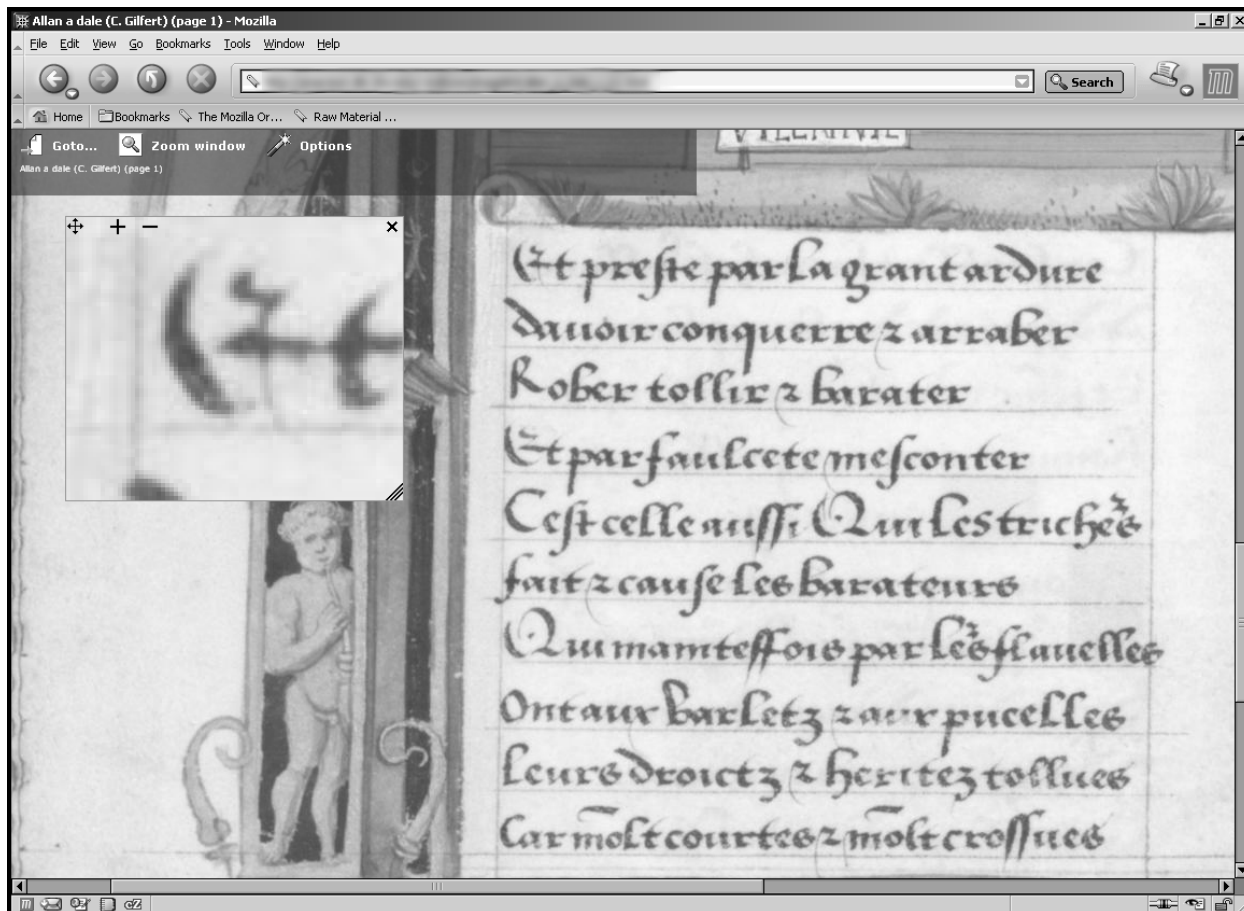 Allan a dale (C. Gilfert) (page 1) - Mozilla
File Edit View Go Bookmarks Tools Window Help
Search
Home Bookmarks The Mozilla Or... Raw Material ...
Goto... Zoom window Options
Allan a dale (C. Gilfert) (page 1)
Et preste par la grant ardure
dauoir conquerre ⁊ arraber
Rober tollir ⁊ barater
Et par faulcete mesconter
Cest celle aussi Qui les triche&#8203;rs
fait ⁊ cause les barateurs
Qui mainteffois par le&#8203;rs flauelles
Ont aux varletz ⁊ aux pucelles
Leurs droictz ⁊ heritez tollues
Car molt courtes ⁊ molt crossues